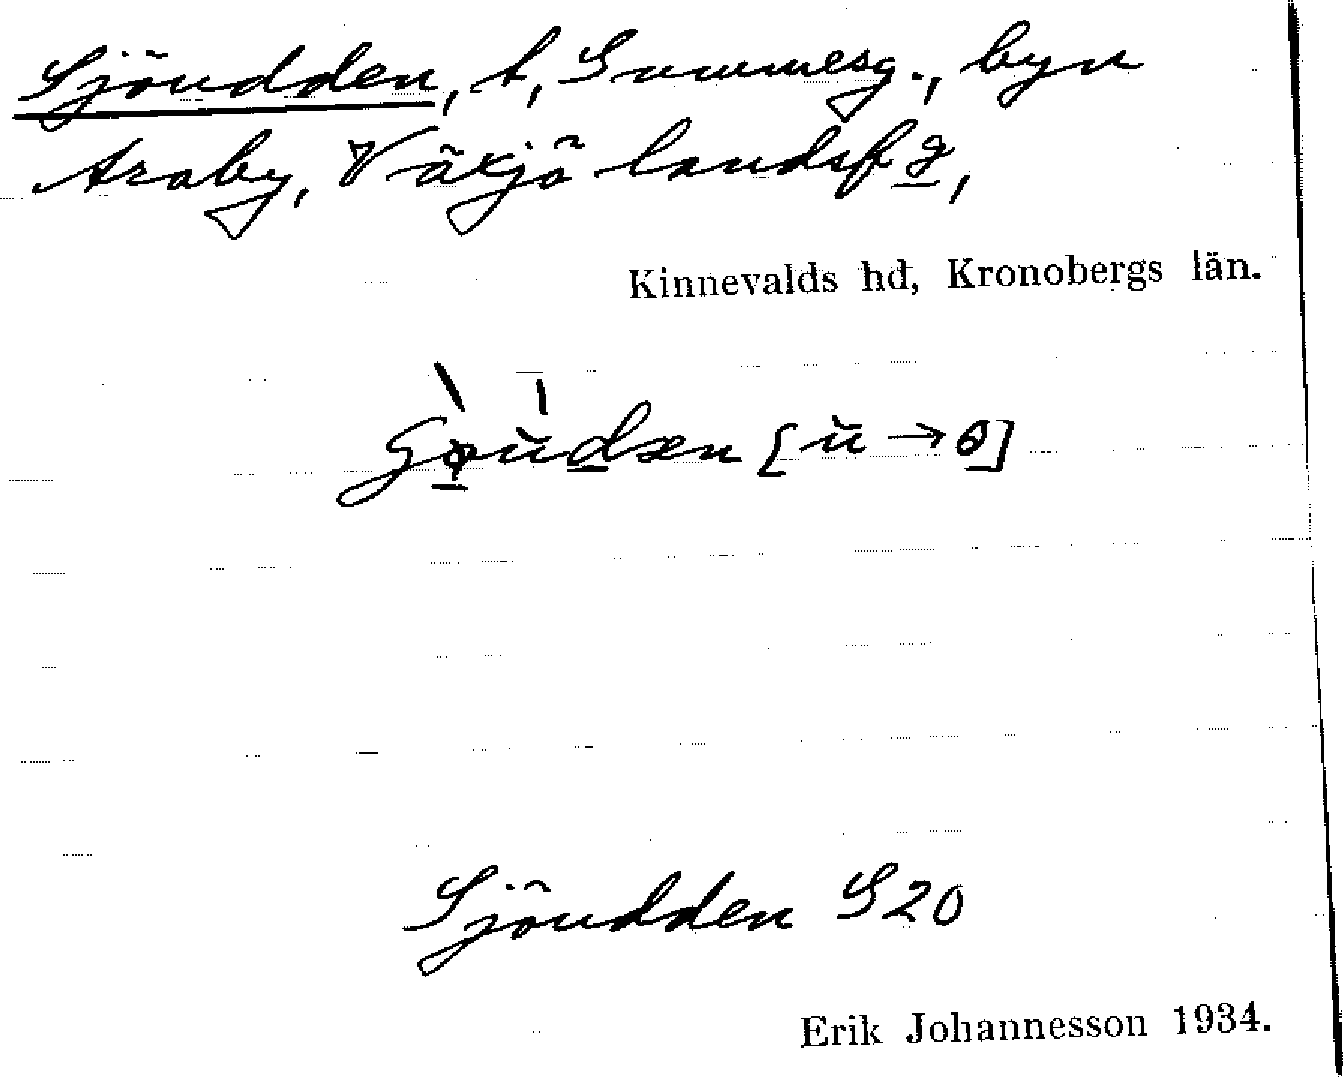 Sjöudden, t, Summesg., byn
Araby, Växjö landsf g,
Kinnevalds hd, Kronobergs län.
Sjöudden S20
Erik Johannesson 1934.